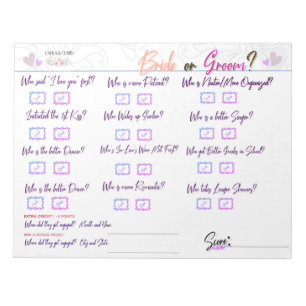 Bride or Groom?
Who said "I love you" first?
Who is more Patient?
Who is Neater/More Organized?
Initiated the 1st Kiss?
Who Wakes up Earlier?
Who is a better Singer?
Who is the better Dancer?
Who's In-Laws Were Met First?
Who got Better Grades in School?
Who is the better Driver?
Who is more Romantic?
Who takes Longer Showers?
EXTRA CREDIT! +5 POINTS
Where did they get engaged? Month and Year:
WIN A BONUS PRIZE!
Where did they get engaged? City and State:
Score